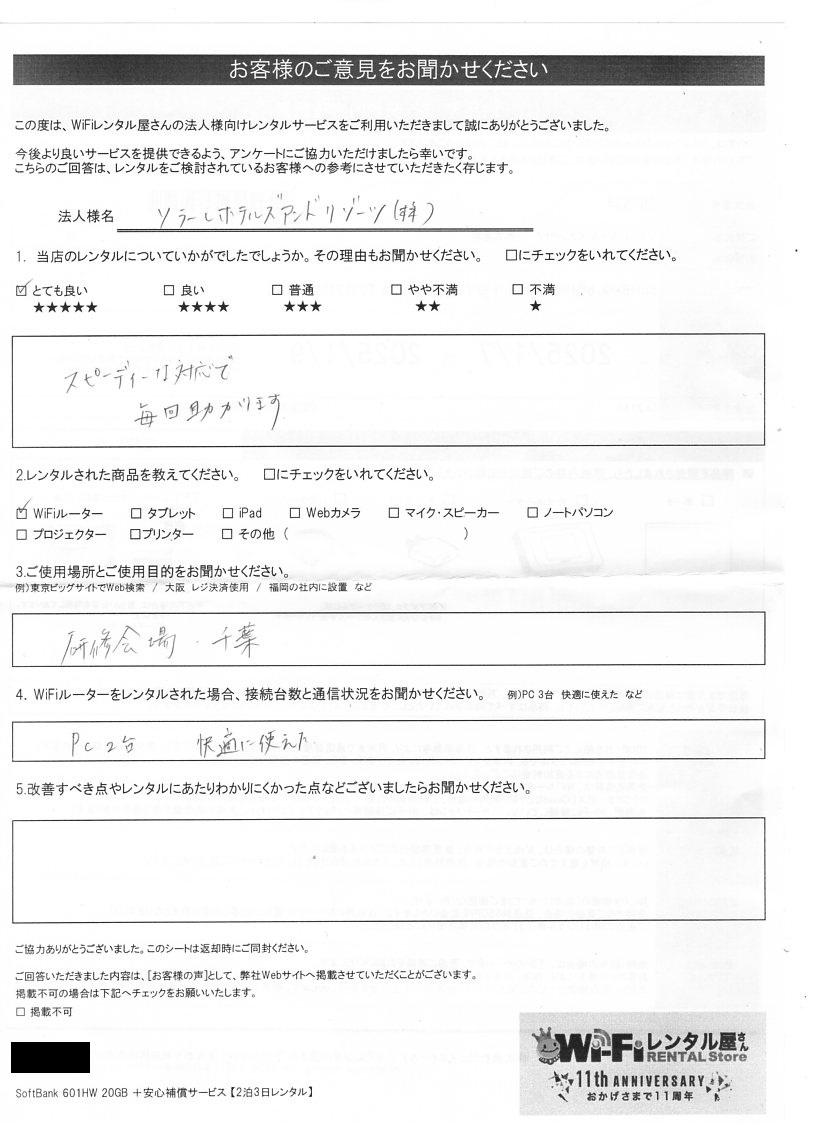 お客様のご意見をお聞かせください
この度は、WiFiレンタル屋さんの法人様向けレンタルサービスをご利用いただきまして誠にありがとうございました。
今後より良いサービスを提供できるよう、アンケートにご協力いただけましたら幸いです。
こちらのご回答は、レンタルをご検討されているお客様への参考にさせていただきたく存じます。
法人様名 ソラーレホテルズアンドリゾーツ(株)
1. 当店のレンタルについていかがでしたでしょうか。その理由もお聞かせください。 □にチェックをいれてください。
☑ とても良い □ 良い □ 普通 □ やや不満 □ 不満
★★★★★ ★★★★ ★★★ ★★ ★
スピーディーな対応で
毎回助かります
2.レンタルされた商品を教えてください。 □にチェックをいれてください。
☑ WiFiルーター □ タブレット □ iPad □ Webカメラ □ マイク・スピーカー □ ノートパソコン
□ プロジェクター □プリンター □ その他 ( )
3.ご使用場所とご使用目的をお聞かせください。
例)東京ビッグサイトでWeb検索 / 大阪 レジ決済使用 / 福岡の社内に設置 など
研修会場・千葉
4. WiFiルーターをレンタルされた場合、接続台数と通信状況をお聞かせください。 例)PC 3台 快適に使えた など
PC 2台 快適に使えた
5.改善すべき点やレンタルにあたりわかりにくかった点などございましたらお聞かせください。
ご協力ありがとうございました。このシートは返却時にご同封ください。
ご回答いただきました内容は、[お客様の声]として、弊社Webサイトへ掲載させていただくことがございます。
掲載不可の場合は下記へチェックをお願いいたします。
□ 掲載不可
WiFiレンタル屋さん
RENTAL Store
11th ANNIVERSARY
おかげさまで11周年
SoftBank 601HW 20GB +安心補償サービス【2泊3日レンタル】